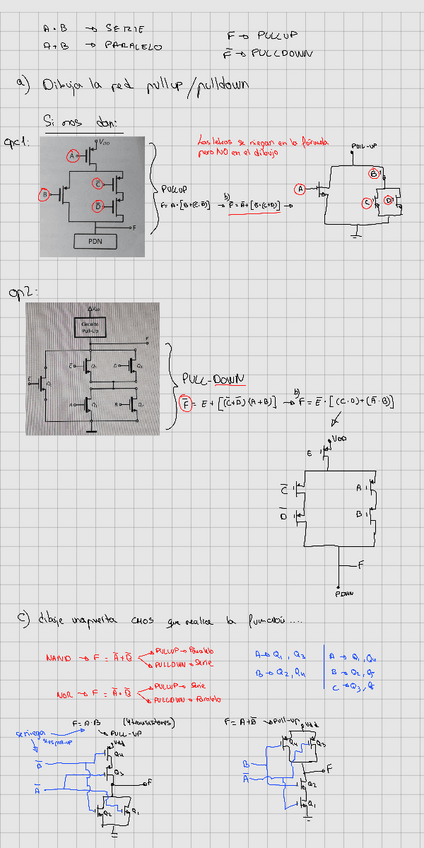 A·B → SERIE
A+B → PARALELO
F → PULLUP
F̅ → PULLDOWN
a) Dibuja la red pullup/pulldown
Si nos dan:
opc1:
VDD
A
B
C
D
F
PDN
PULLUP
Las letras se niegan en la fórmula
pero NO en el dibujo
PULL-UP
A
B
C
D
op2:
F
PULL-DOWN
F̅ = E + [(C̅+D̅)(A+B)] → F = E̅ · [(C·D)+(A̅·B̅)]
VDD
E
C̅
D̅
A
B
F
PDWN
c) dibuje una puerta CMOS que realice la función....
NAND → F = A̅+B̅
PULLUP → Paralelo
PULLDOWN → Serie
NOR → F =
PULLUP → Serie
PULLDOWN → Paralelo
A → Q1, Q3
B → Q2, Q4
A → Q1,
B → Q2,
C → Q3,
F = A·B (4 transistores)
se niega
PULL-UP
Vdd
Q4
Q3
B̅
A̅
F
Q2
Q1
F = A+B̅ → pull-up
Vdd
Q4
Q3
B
A̅
F
Q2
Q1